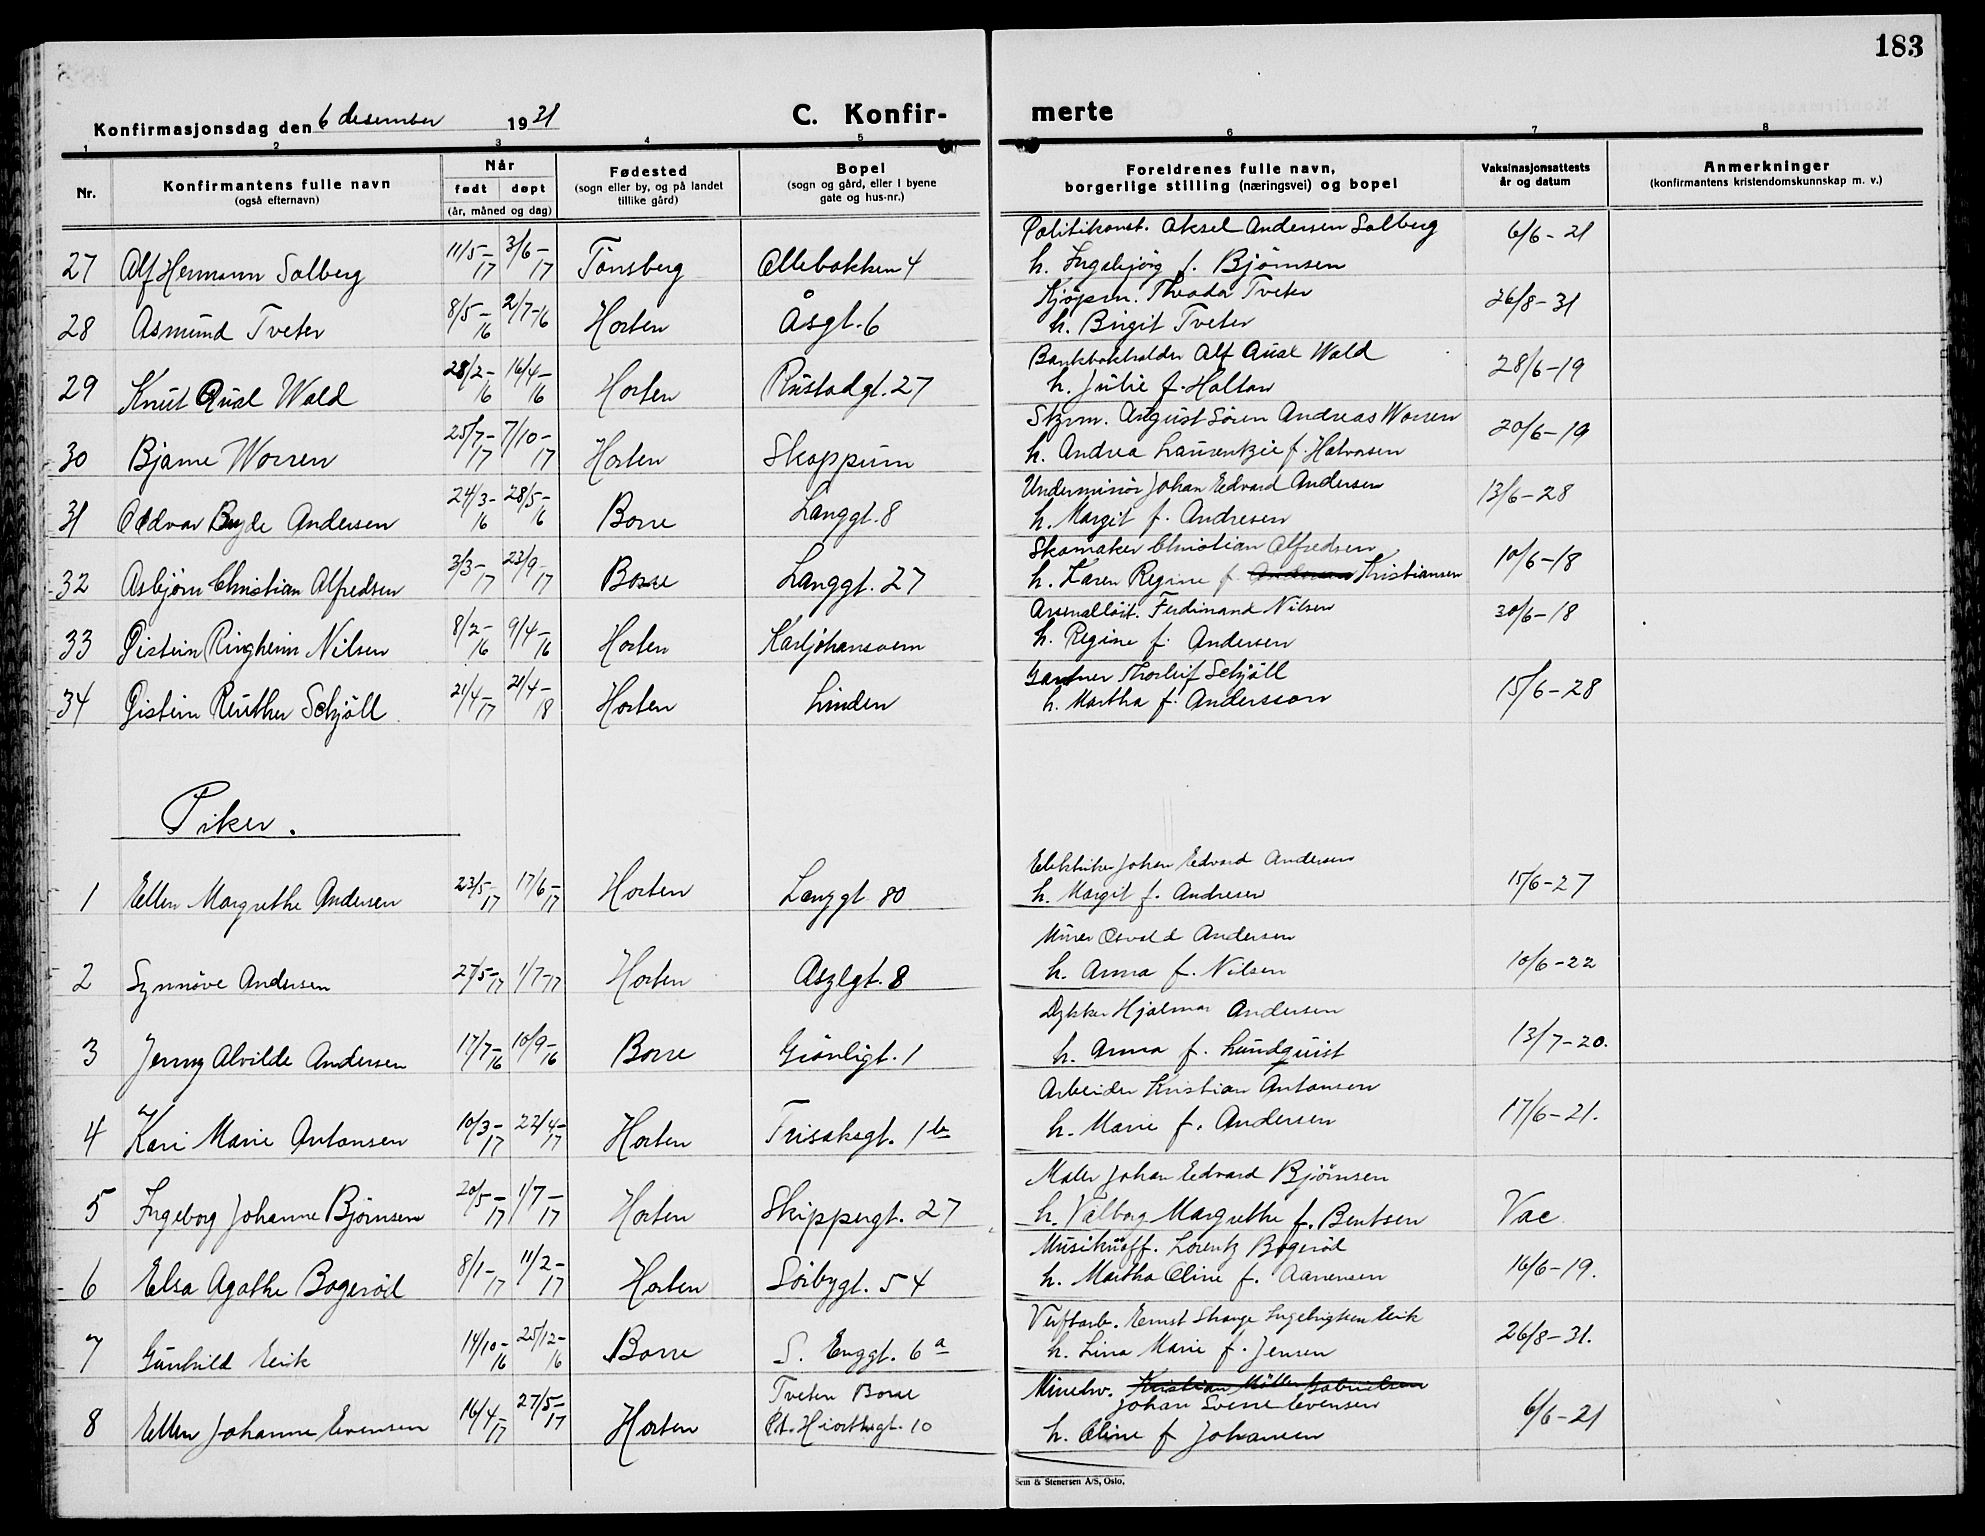 183
Konfirmasjonsdag den 6 desember 1931
C. Konfir- merte
1 2 3 4 5 6 7 8
Nr.
Konfirmantens fulle navn
(også efternavn)
Når
født døpt
(år, måned og dag)
Fødested
(sogn eller by, og på landet
tillike gård)
Bopel
(sogn og gård, eller i byene
gate og hus-nr.)
Foreldrenes fulle navn,
borgerlige stilling (næringsvei) og bopel
Vaksinasjonsattests
år og datum
Anmerkninger
(konfirmantens kristendomskunnskap m. v.)
27 Alf Hermann Solberg 11/5-17 3/6-17 Tønsberg Ollebakken 4 Politikonst. Aksel Andersen Solberg 6/6-21
h. Ingebjørg f. Bjørnsen
28 Asmund Tveter 8/5-16 2/7-16 Horten Åsgt. 6 Kjøpm. Theodor Tveter 26/8-31
h. Birgit Tveter
29 Knut Wold 28/2-16 16/4-16 Horten Rustadgt. 27 Bankbokholder Alf Wold 28/6-19
h. Julie f. Holtan
30 Bjarne Worren 25/7-17 7/10-17 Horten Skoppum Styrm. August Sören Andreas Worren 20/6-19
h. Andrea Laurentzie f. Halvorsen
31 Oddvar Bryde Andersen 24/3-16 28/5-16 Borre Langgt. 8 Underminör Johan Edvard Andersen 13/6-28
h. Margit f. Andresen
32 Asbjørn Christian Alfredsen 3/3-17 23/9-17 Borre Langgt. 27 Skomaker Christian Alfredsen 10/6-18
h. Karen Regine f. Andersen Kristiansen
33 Øistein Ringheim Nilsen 8/2-16 9/4-16 Horten Karljohansvern Arsenallöit. Ferdinand Nilsen 30/6-18
h. Regine f. Andersen
34 Øistein Reuther Schjöll 21/4-17 21/4-18 Horten Linden Gartner Thorleif Schjöll 15/6-28
h. Martha f. Andersson
Piker.
1 Ellen Margrethe Andersen 23/5-17 17/6-17 Horten Langgt. 80 Elektriker Johan Edvard Andersen 15/6-27
h. Margit f. Andresen
2 Synnöve Andersen 27/5-17 1/7-17 Horten Asylgt. 8 Minör Osvald Andersen 10/6-22
h. Anna f. Nilsen
3 Jenny Alvilde Andersen 17/7-16 10/9-16 Borre Grönligt. 1 Dykker Hjalmar Andersen 13/7-20.
h. Anna f. Lundquist
4 Kari Marie Antonsen 10/3-17 22/4-17 Horten Arbeider Kristian Antonsen 17/6-21.
h. Marie f. Andersen
5 Ingeborg Johanne Bjørnsen 20/5-17 1/7-17 Horten Skippergt. 27 Maler Johan Edvard Bjørnsen
h. Valborg Margrethe f. Bentsen Vac.
6 Elsa Agathe Bogeröd 8/1-17 11/2-17 Horten Sörbygt. 54 Musikuoff. Lorentz Bogeröd 16/6-19.
h. Martha Oline f. Aanensen
7 Gunhild Eeik 14/10-16 25/12-16 Borre S. Enggt. 6a Verftarb. Ernst Strange Ingebrigtsen Eeik 26/8-31.
h. Lina Marie f. Jensen
8 Ellen Johanne Evensen 16/4-17 27/5-17 Horten Tveten Borre Minehv. Kristian Möller Gabrielsen 6/6-21
Pt. Hiorthsgt. 10 Johan Sverre Evensen
h. Oline f. Johansen
Sem & Stenersen A/S, Oslo.